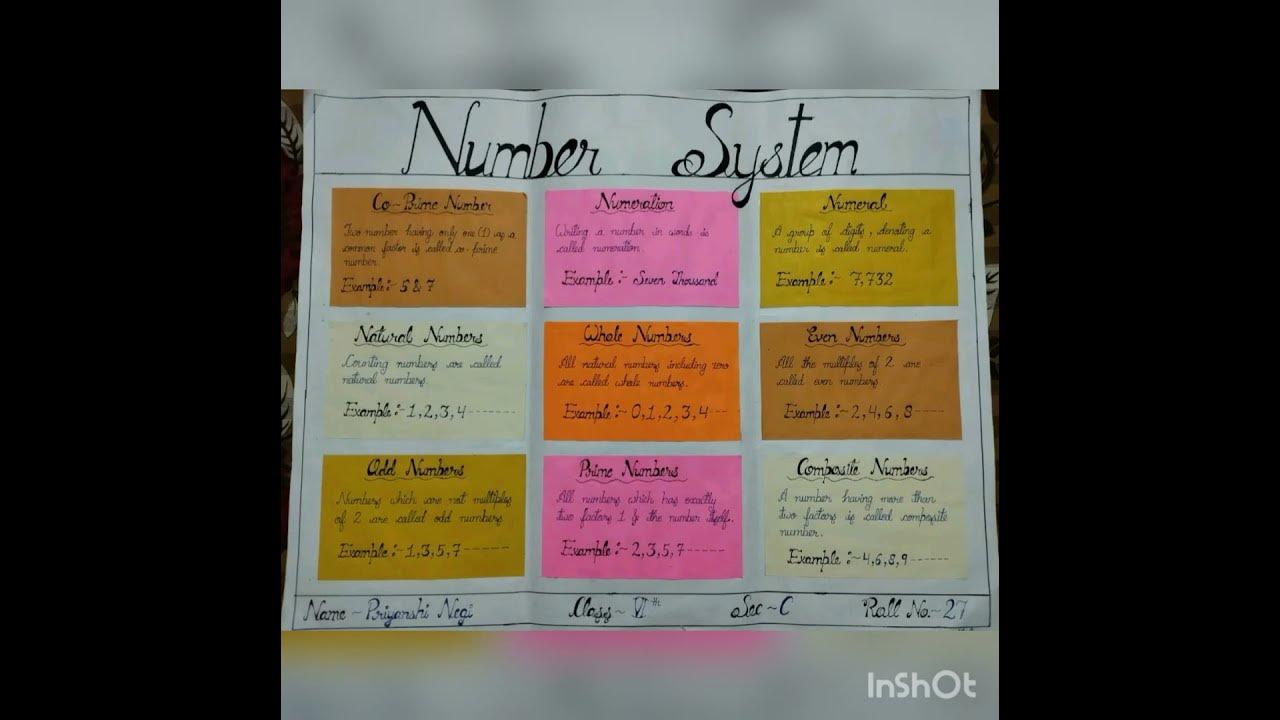 Number System
Co-Prime Number
Two number having only one (1) as a
common factor is called co-prime
number.
Example:- 5 & 7
Numeration
Writing a number in words is
called numeration.
Example:- Seven Thousand
Numeral
A group of digits, denoting a
number is called numeral.
Example:- 7,732
Natural Numbers
Counting numbers are called
natural numbers.
Example:- 1,2,3,4-------
Whole Numbers
All natural numbers including zero
are called whole numbers.
Example:- 0,1,2,3,4---
Even Numbers
All the multiples of 2 are
called even numbers.
Example:- 2,4,6,8-----
Odd Numbers
Numbers which are not multiples
of 2 are called odd numbers
Example:- 1,3,5,7------
Prime Numbers
All numbers which has exactly
two factors 1 & the number itself.
Example:- 2,3,5,7------
Composite Numbers
A number having more than
two factors is called composite
number.
Example:- 4,6,8,9-------
Name ~ Priyanshi Negi Class ~ VIth Sec ~ C Roll No.~ 27
InShOt